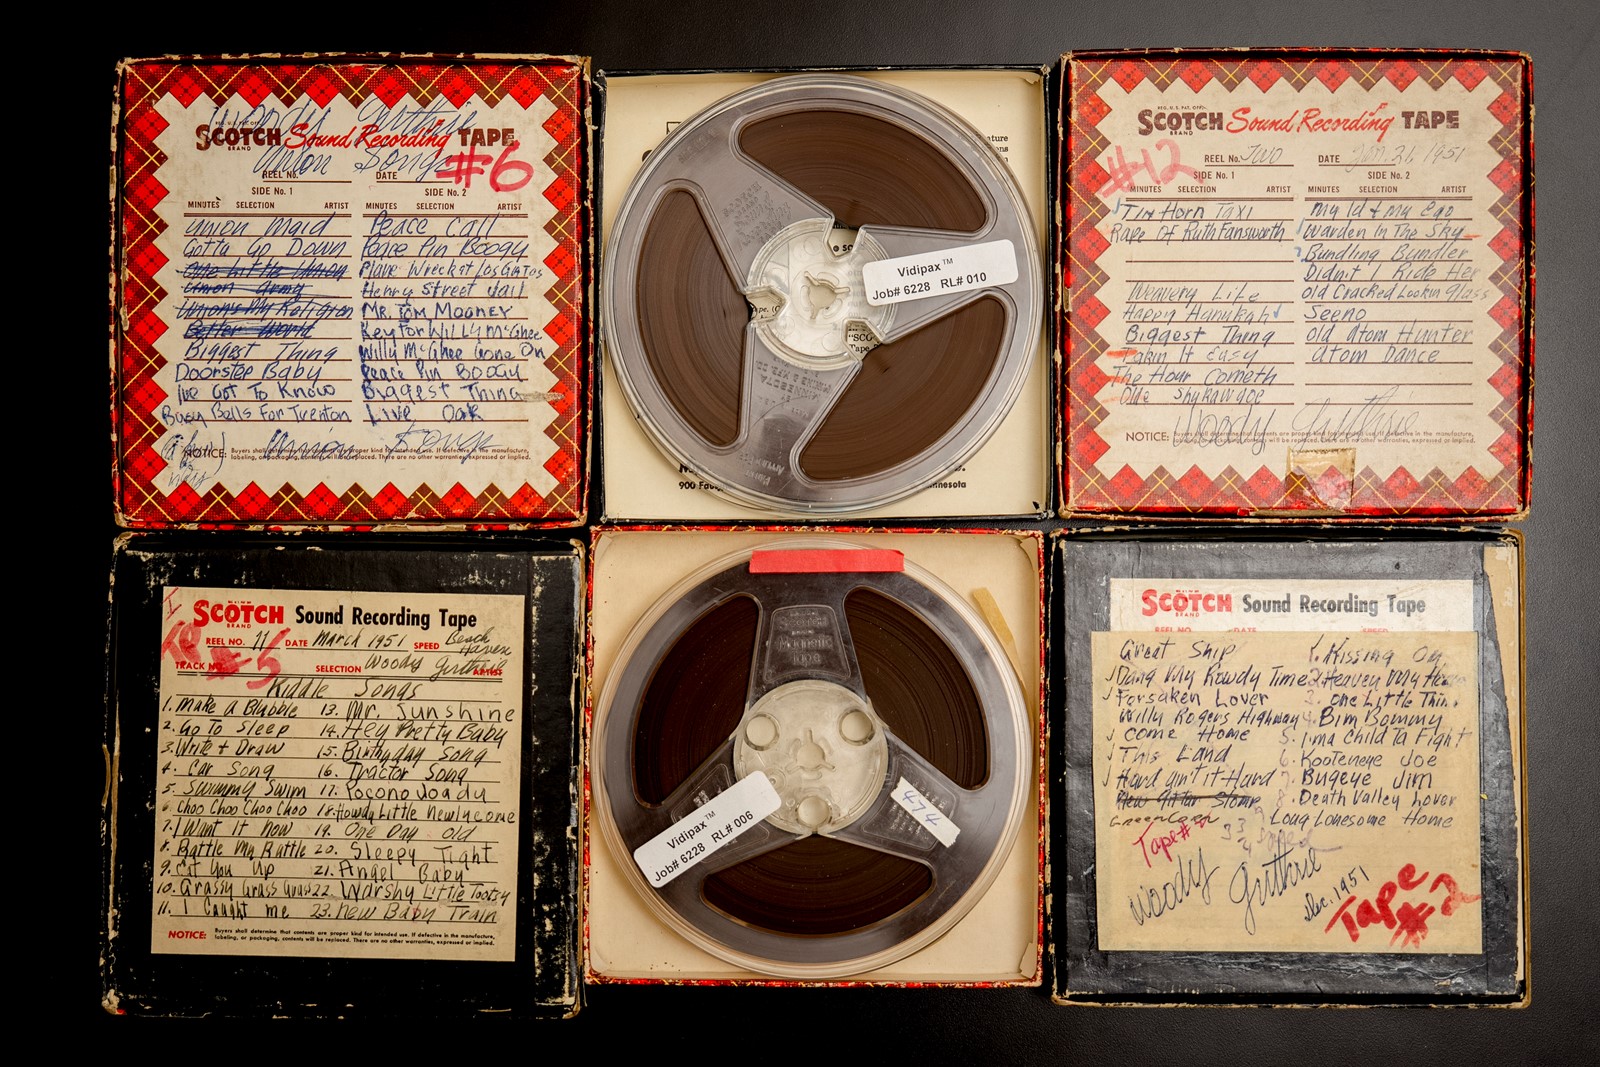 Woody Guthrie
REG. U.S. PAT. OFF.
SCOTCH Sound Recording TAPE
BRAND
Union Songs #6
REEL No. DATE
SIDE No. 1 SIDE No. 2
MINUTES SELECTION ARTIST MINUTES SELECTION ARTIST
Union Maid Peace Call
Gotta Go Down Peace Pin Boogy
One Little Union Plane Wreck at Los Gatos
Union Army Henry Street Jail
Union's My Religion Mr. Tom Mooney
Better World Key for Willy McGhee
Biggest Thing Willy McGhee Gone On
Doorstep Baby Peace Pin Boogy
I've Got To Know Biggest Thing
Busy Bells For Trenton Live Oak
Union Songs
NOTICE: Buyers shall determine that contents are proper kind for intended use. If defective in the manufacture,
labeling, or packaging, contents will be replaced. There are no other warranties, expressed or implied.
Vidipax™
Job# 6228 RL# 010
MINNESOTA
900 Fauq
nnesota
REG. U.S. PAT. OFF.
SCOTCH Sound Recording TAPE
BRAND
#12
REEL No. Two DATE Jan. 21, 1951
SIDE No. 1 SIDE No. 2
MINUTES SELECTION ARTIST MINUTES SELECTION ARTIST
Tin Horn Taxi My Id & My Ego
Rape Of Ruth Fansworth Warden In The Sky
Bundling Bundler
Didn't I Ride Her
Weavery Life Old Cracked Lookin Glass
Happy Hanukah Seeno
Biggest Thing Old Atom Hunter
Takin It Easy Atom Dance
The Hour Cometh
Olde Shykawdge
Woody Guthrie
NOTICE:
SCOTCH Sound Recording Tape
BRAND
REEL NO. 11 DATE March 1951 SPEED Beach Haven
#5
TRACK NO. SELECTION Woody Guthrie ARTIST
Kiddle Songs
1. Make A Blubble 13. Mr. Sunshine
2. Go To Sleep 14. Hey Pretty Baby
3. Write + Draw 15. Birthday Song
4. Car Song 16. Tractor Song
5. Swimmy Swim 17. Pocono Joady
6. Choo Choo Choo Choo 18. Howdy Little Newlycome
7. I Want It Now 19. One Day Old
8. Rattle My Rattle 20. Sleepy Tight
9. Eat You Up 21. Angel Baby
10. Grassy Grass Grass 22. Warshy Little Tootsy
11. I Caught Me 23. New Baby Train
NOTICE: Buyers shall determine that contents are proper kind for intended use. If defective in the manufacture,
labeling, or packaging, contents will be replaced. There are no other warranties, expressed or implied.
Scotch
Magnetic
Tape
Vidipax™
Job# 6228 RL# 006
474
SCOTCH Sound Recording Tape
BRAND
REEL NO. DATE SPEED
Great Ship 1. Kissing On
Dang My Rowdy Time 2. Heaven My Home
Forsaken Lover 3. One Little Thing
Willy Rogers Highway 4. Bim Bommy
Come Home 5. I ma Child Ta Fight
This Land 6. Kooteneye Joe
Hard Ain't it Hard 7. Bugeye Jim
New Gitar Stomp 8. Death Valley Lover
Green Corn 9. Long Lonesome Home
Tape #2
3 3/4 Speed
Woody Guthrie
Dec. 1951
Tape
#2